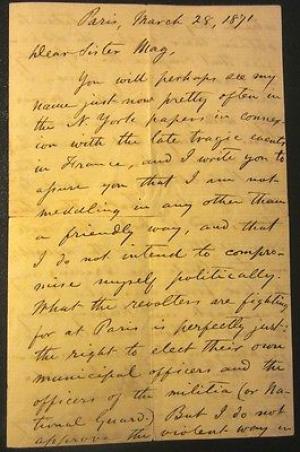 Paris, March 28, 1871
Dear Sister Mag,
You will perhaps see my
name just now pretty often in
the N. York papers in connex-
ion with the late tragic events
in France, and I write you to
assure you that I am not
meddling in any other than
a friendly way, and that
I do not intend to compro-
mise myself politically.
What the revolters are fighting
for at Paris is perfectly just:
the right to elect their own
municipal officers and the
officers of the militia (or Na-
tional Guard.) But I do not
approve the violent way in